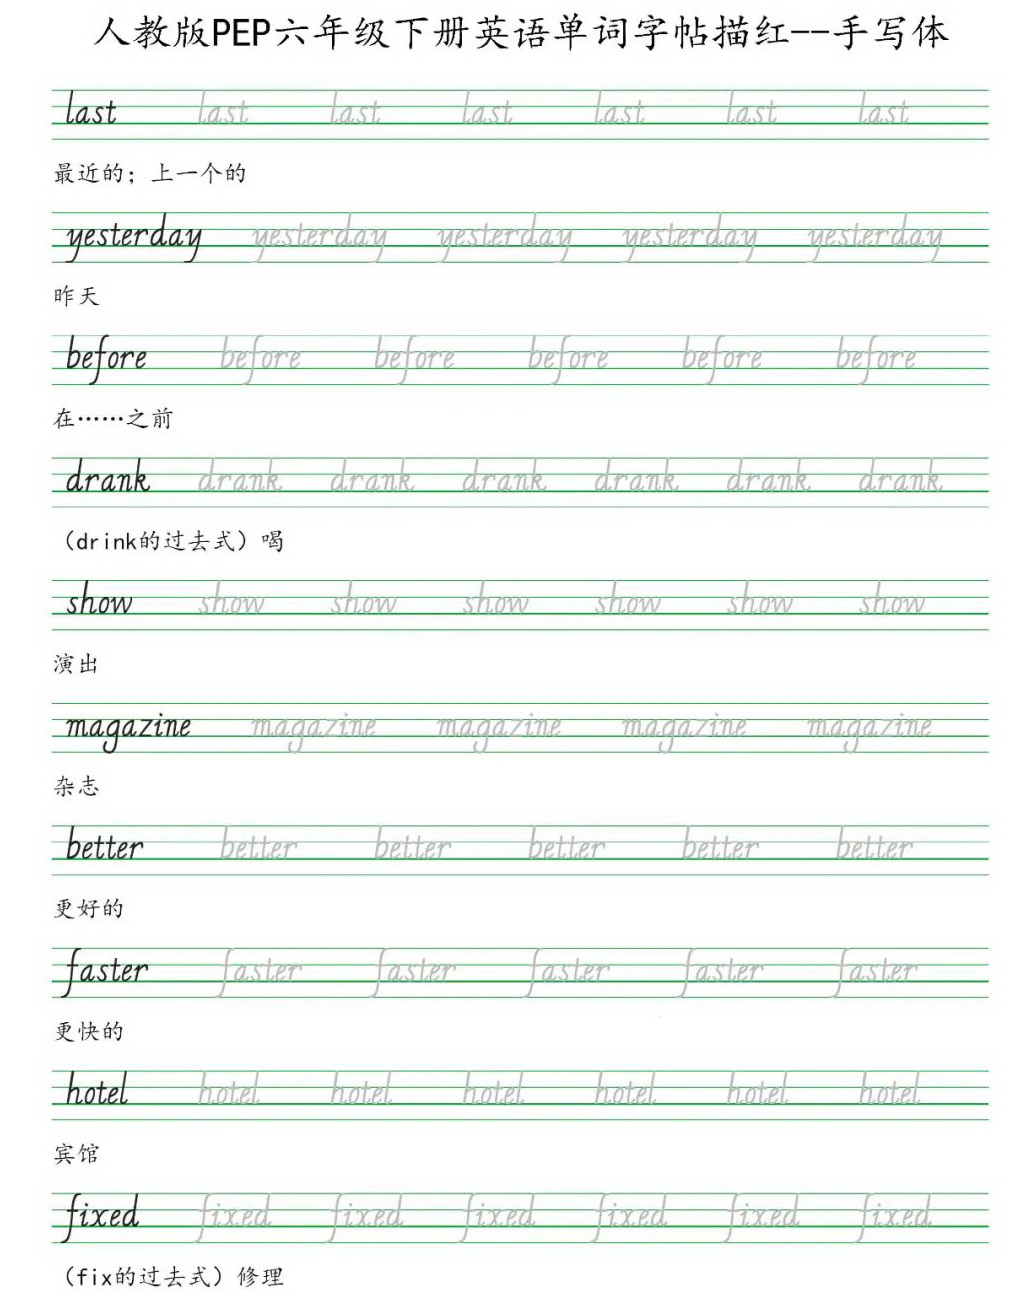 人教版PEP六年级下册英语单词字帖描红--手写体
last last last last last last last
最近的；上一个的
yesterday yesterday yesterday yesterday yesterday
昨天
before before before before before before
在……之前
drank drank drank drank drank drank drank
（drink的过去式）喝
show show show show show show show
演出
magazine magazine magazine magazine magazine
杂志
better better better better better better
更好的
faster faster faster faster faster faster
更快的
hotel hotel hotel hotel hotel hotel hotel
宾馆
fixed fixed fixed fixed fixed fixed fixed
（fix的过去式）修理